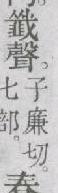 韱聲。子廉切。七部。春